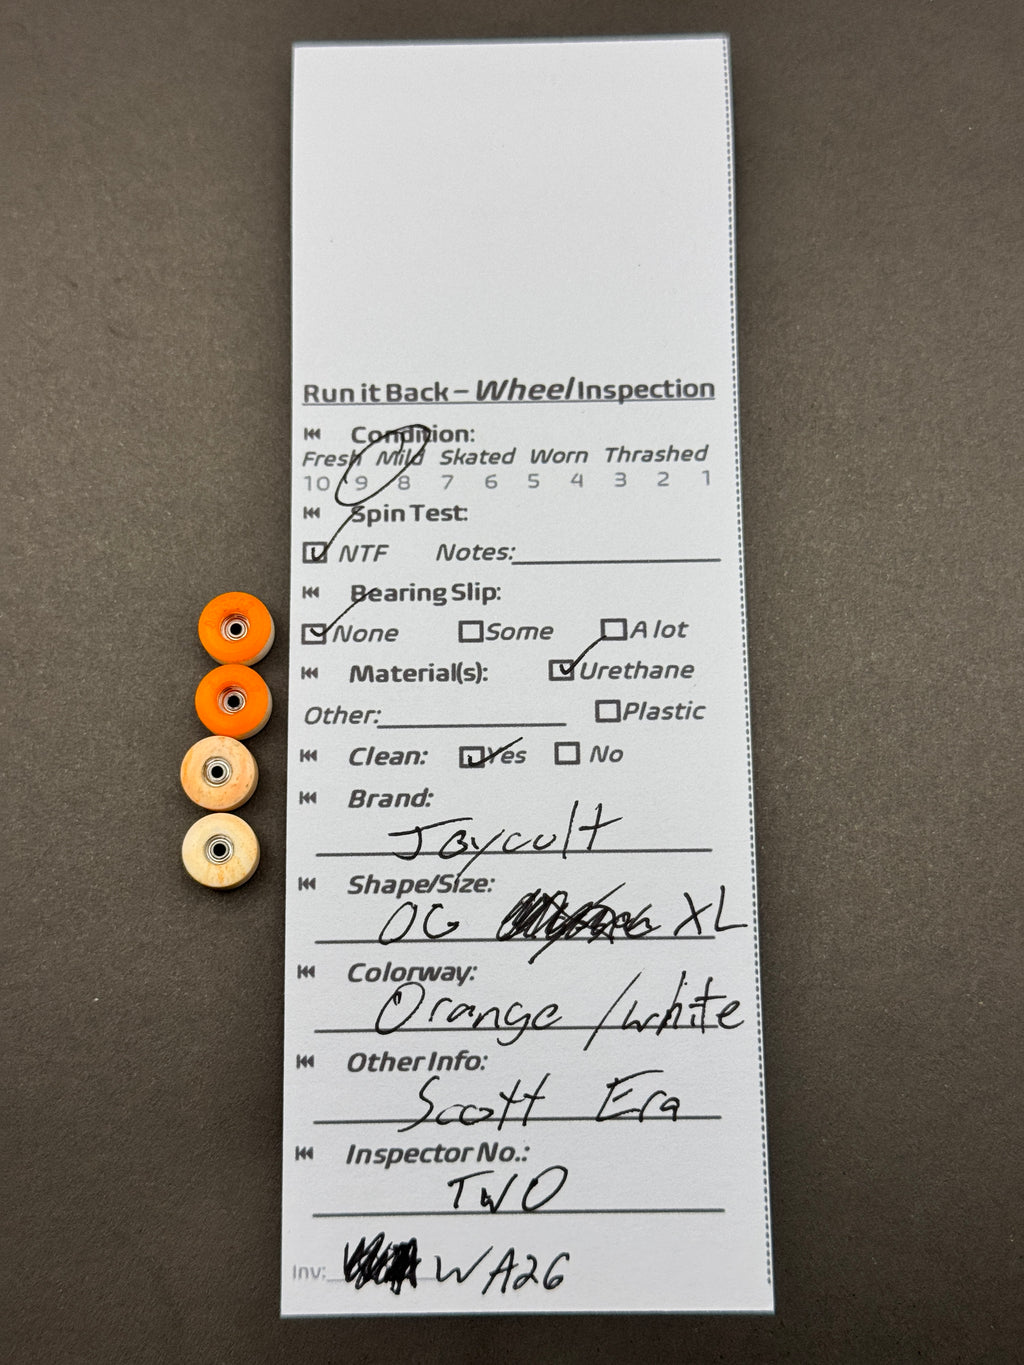 Run it Back – Wheel Inspection
Condition:
Fresh Mild Skated Worn Thrashed
10 9 8 7 6 5 4 3 2 1
Spin Test:
NTF Notes:
Bearing Slip:
None Some A lot
Material(s): Urethane
Other: Plastic
Clean: Yes No
Brand:
Joycult
Shape/Size:
OG XL
Colorway:
Orange / white
Other Info:
Scott Era
Inspector No.:
TWO
Inv: WA26